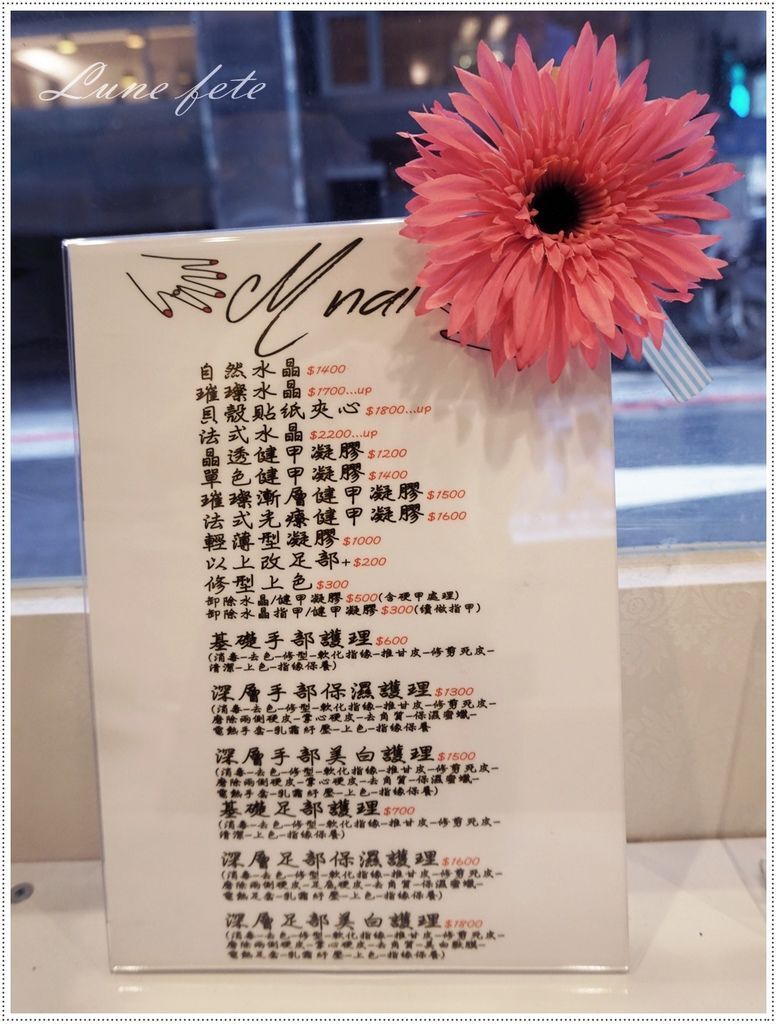 Lune fete
M nai
自然水晶 $1400
璀璨水晶 $1700...up
貝殼貼紙夾心 $1800...up
法式水晶 $2200...up
晶透健甲凝膠 $1200
單色健甲凝膠 $1400
璀璨漸層健甲凝膠 $1500
法式光療健甲凝膠 $1600
輕薄型凝膠 $1000
以上改足部+$200
修型上色 $300
卸除水晶/健甲凝膠 $500(含硬甲處理)
卸除水晶指甲/健甲凝膠 $300(續做指甲)
基礎手部護理 $600
(消毒-去色-修型-軟化指緣-推甘皮-修剪死皮-
清潔-上色-指緣保養)
深層手部保濕護理 $1300
(消毒-去色-修型-軟化指緣-推甘皮-修剪死皮-
磨除兩側硬皮-掌心硬皮-去角質-保濕蜜蠟-
電熱手套-乳霜紓壓-上色-指緣保養)
深層手部美白護理 $1500
(消毒-去色-修型-軟化指緣-推甘皮-修剪死皮-
磨除兩側硬皮-掌心硬皮-去角質-保濕蜜蠟-
電熱手套-乳霜紓壓-上色-指緣保養)
基礎足部護理 $700
(消毒-去色-修型-軟化指緣-推甘皮-修剪死皮-
清潔-上色-指緣保養)
深層足部保濕護理 $1600
(消毒-去色-修型-軟化指緣-推甘皮-修剪死皮-
磨除兩側硬皮-足底硬皮-去角質-保濕蜜蠟-
電熱足套-乳霜紓壓-上色-指緣保養)
深層足部美白護理 $1800
(消毒-去色-修型-軟化指緣-推甘皮-修剪死皮-
磨除兩側硬皮-掌心硬皮-去角質-美白敷膜-
電熱足套-乳霜紓壓-上色-指緣保養)